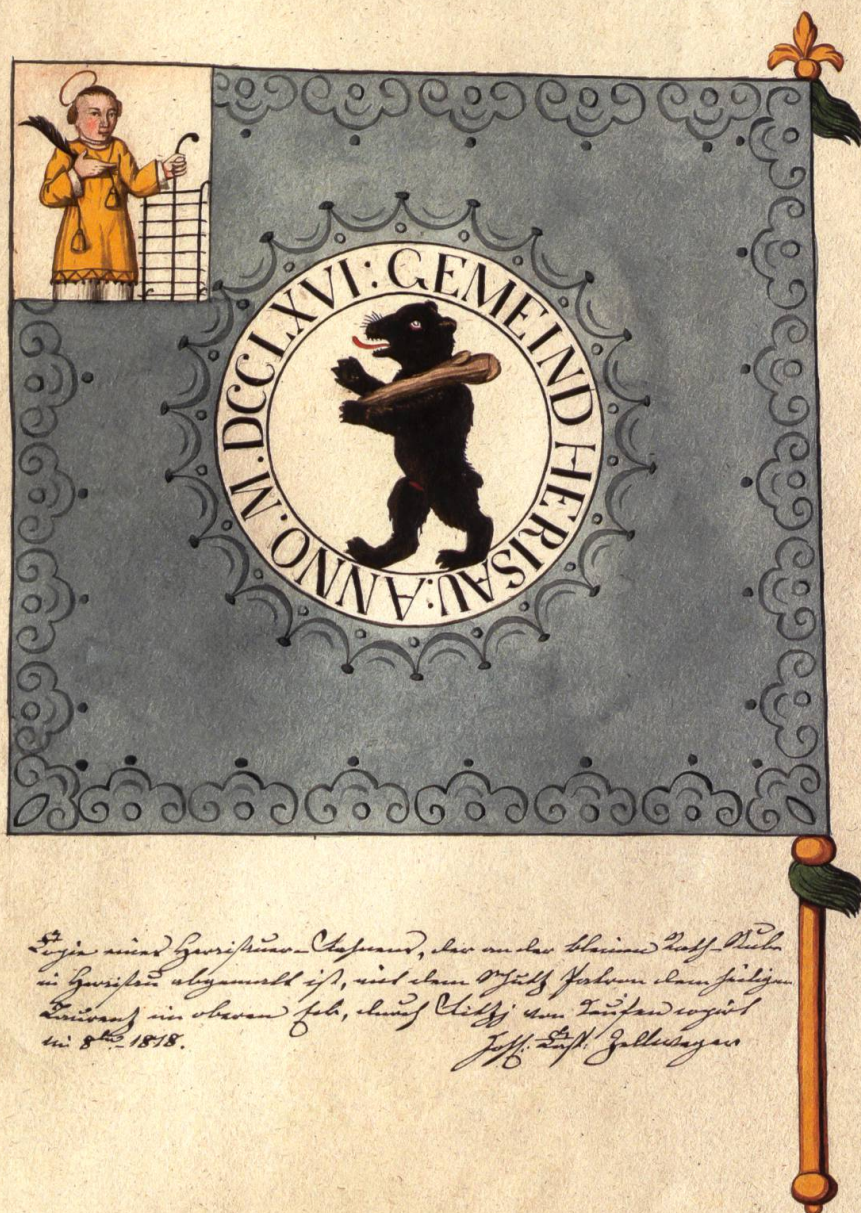 GEMEIND HERISAU: ANNO. M. DCCLXVI:
Copie eines Herisauer-Fahnens, der an der kleinen Rath-Stube
in Herisau abgemalt ist, mit dem Schutz Patron dem heiligen
Laurenz im oberen Eck, durch von Teufen copirt
im 8br. 1818. Joh: Casp: Zellweger